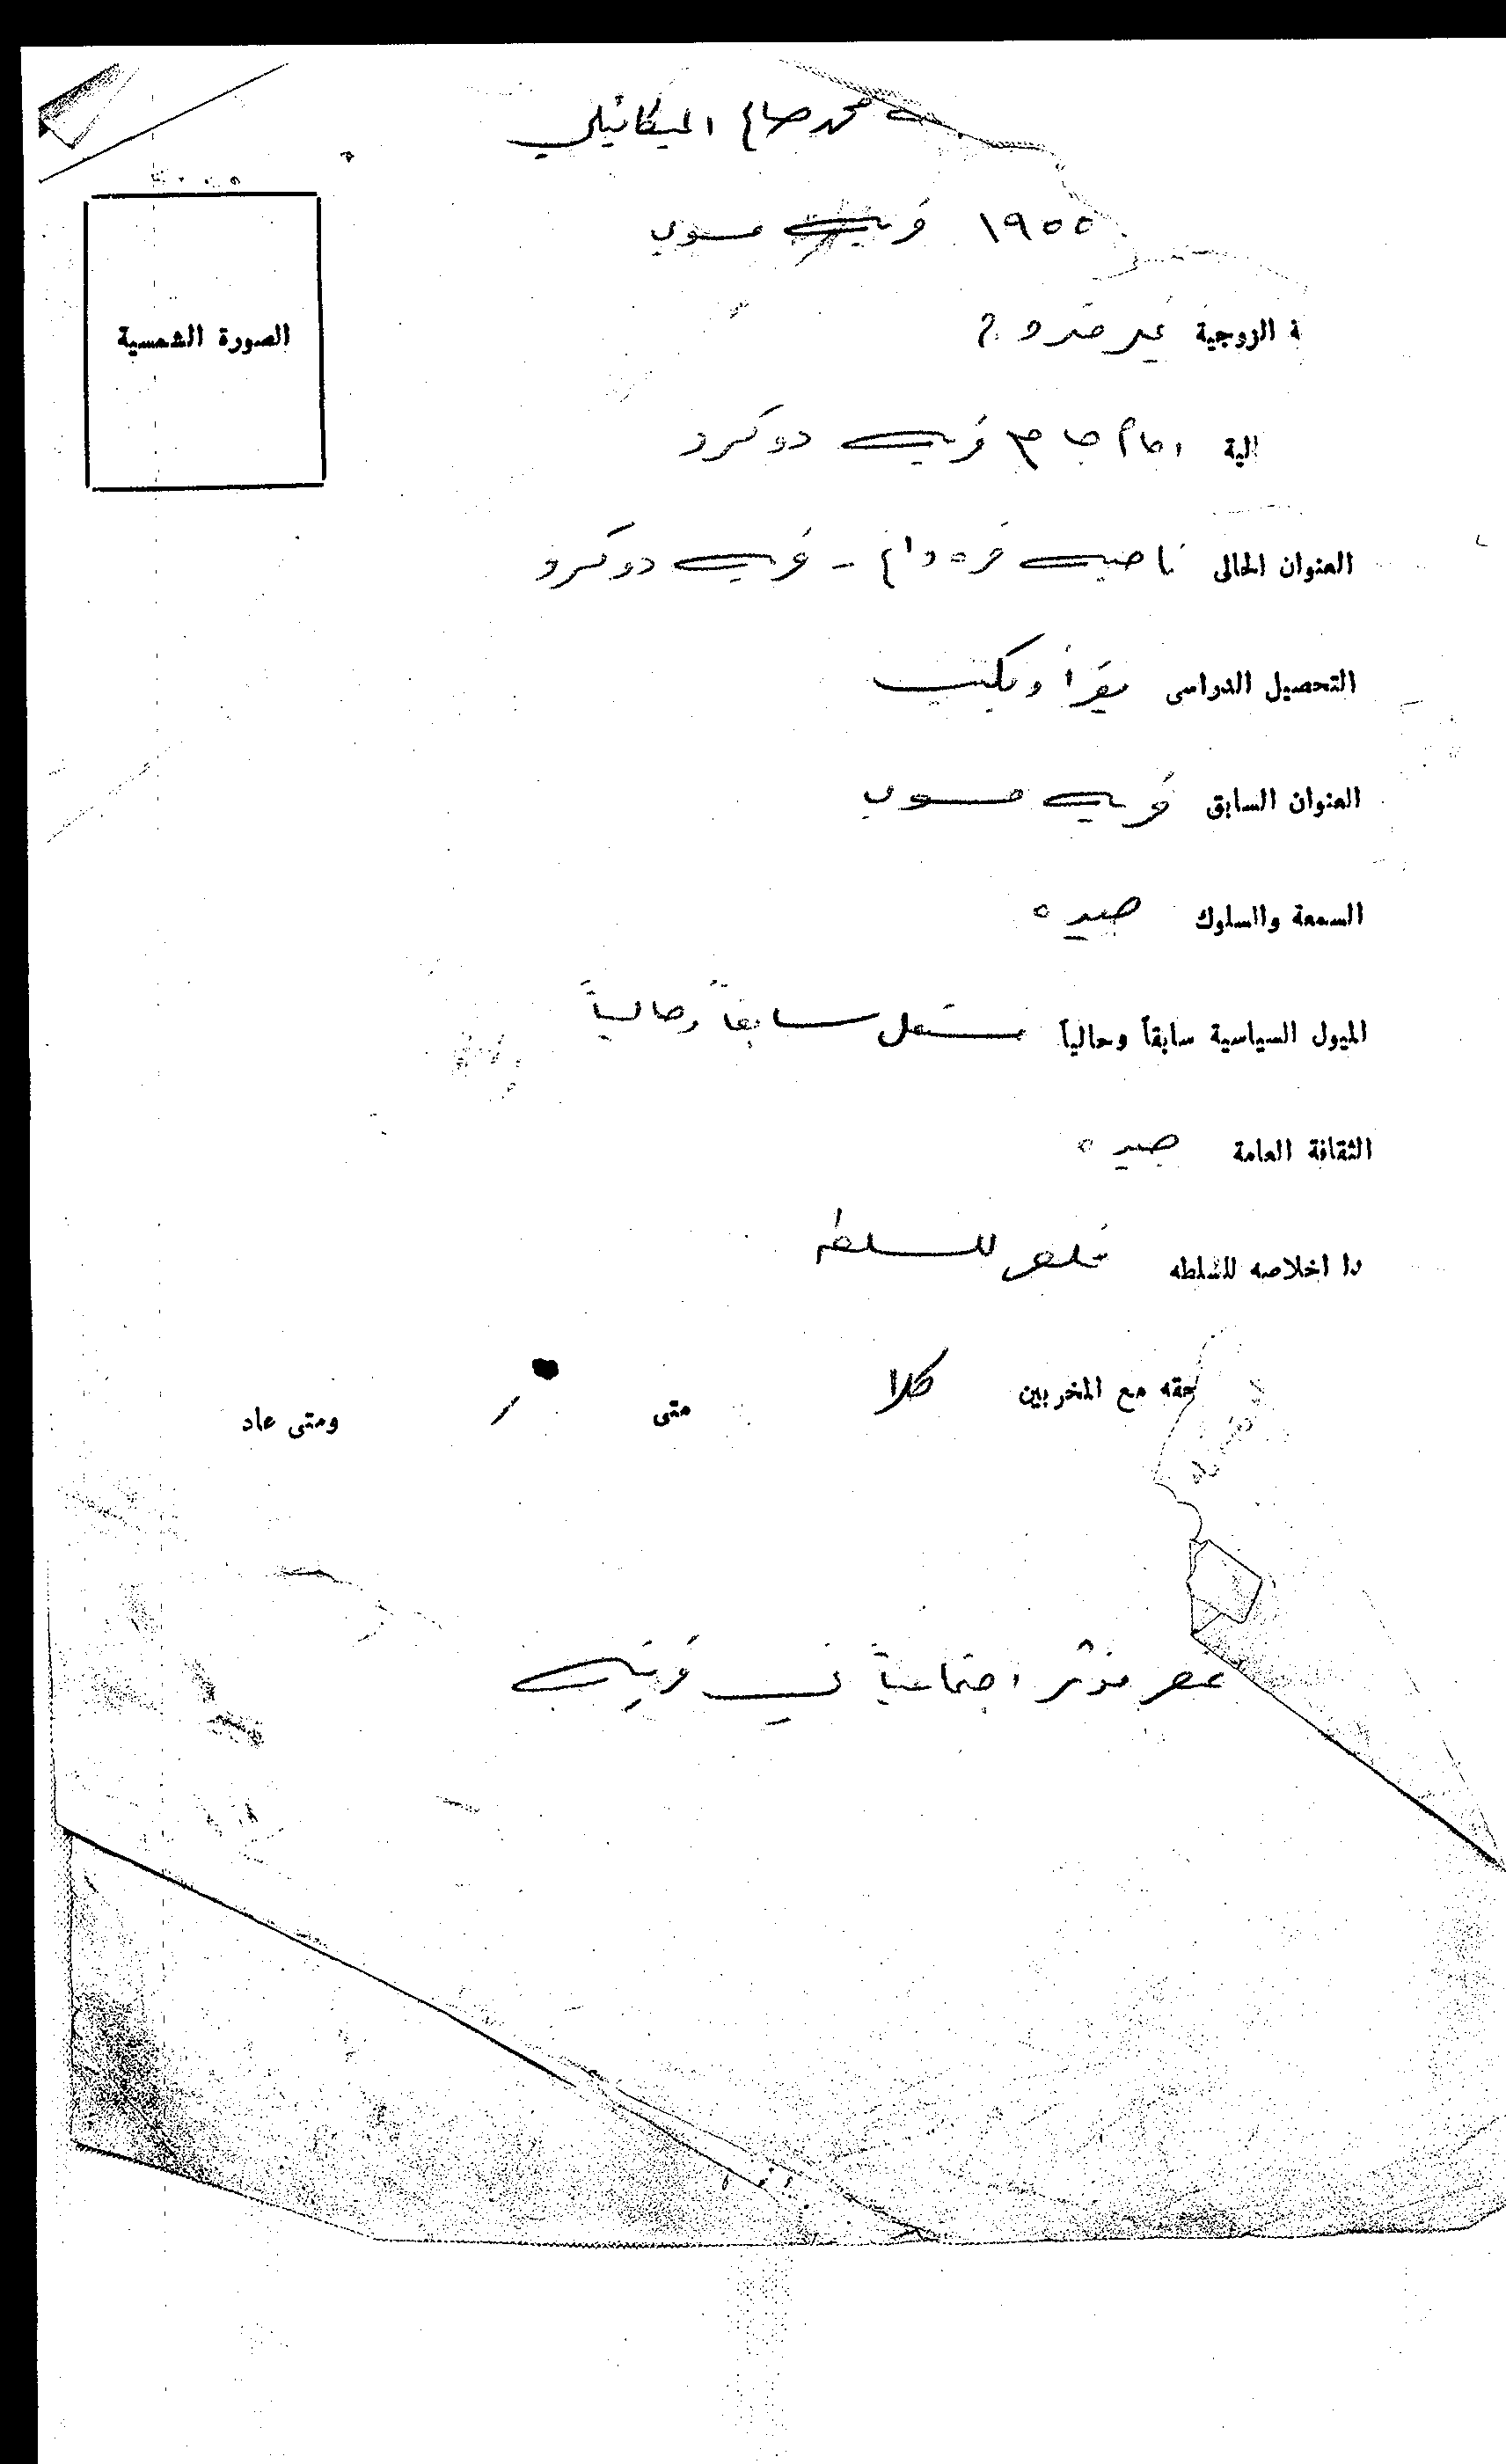 محمد صالح الميكائيلي
١٩٥٥ قرية سوي
الصورة الشمسية
ة الزوجية غير متزوج
الية امام جامع قرية دوكرد
العنوان الحالي ناحية قره داغ - قرية دوكرد
التحصيل الدراسي يقرأ ويكتب
العنوان السابق قرية
السمعة والسلوك جيده
الميول السياسية سابقاً وحالياً مستقل سابقاً وحالياً
الثقافة العامة جيده
اخلاصه للسلطه مخلص للسلطه
حقه مع المخربين كلا متى / ومتى عاد
عنصر مؤثر اجتماعياً في قريته